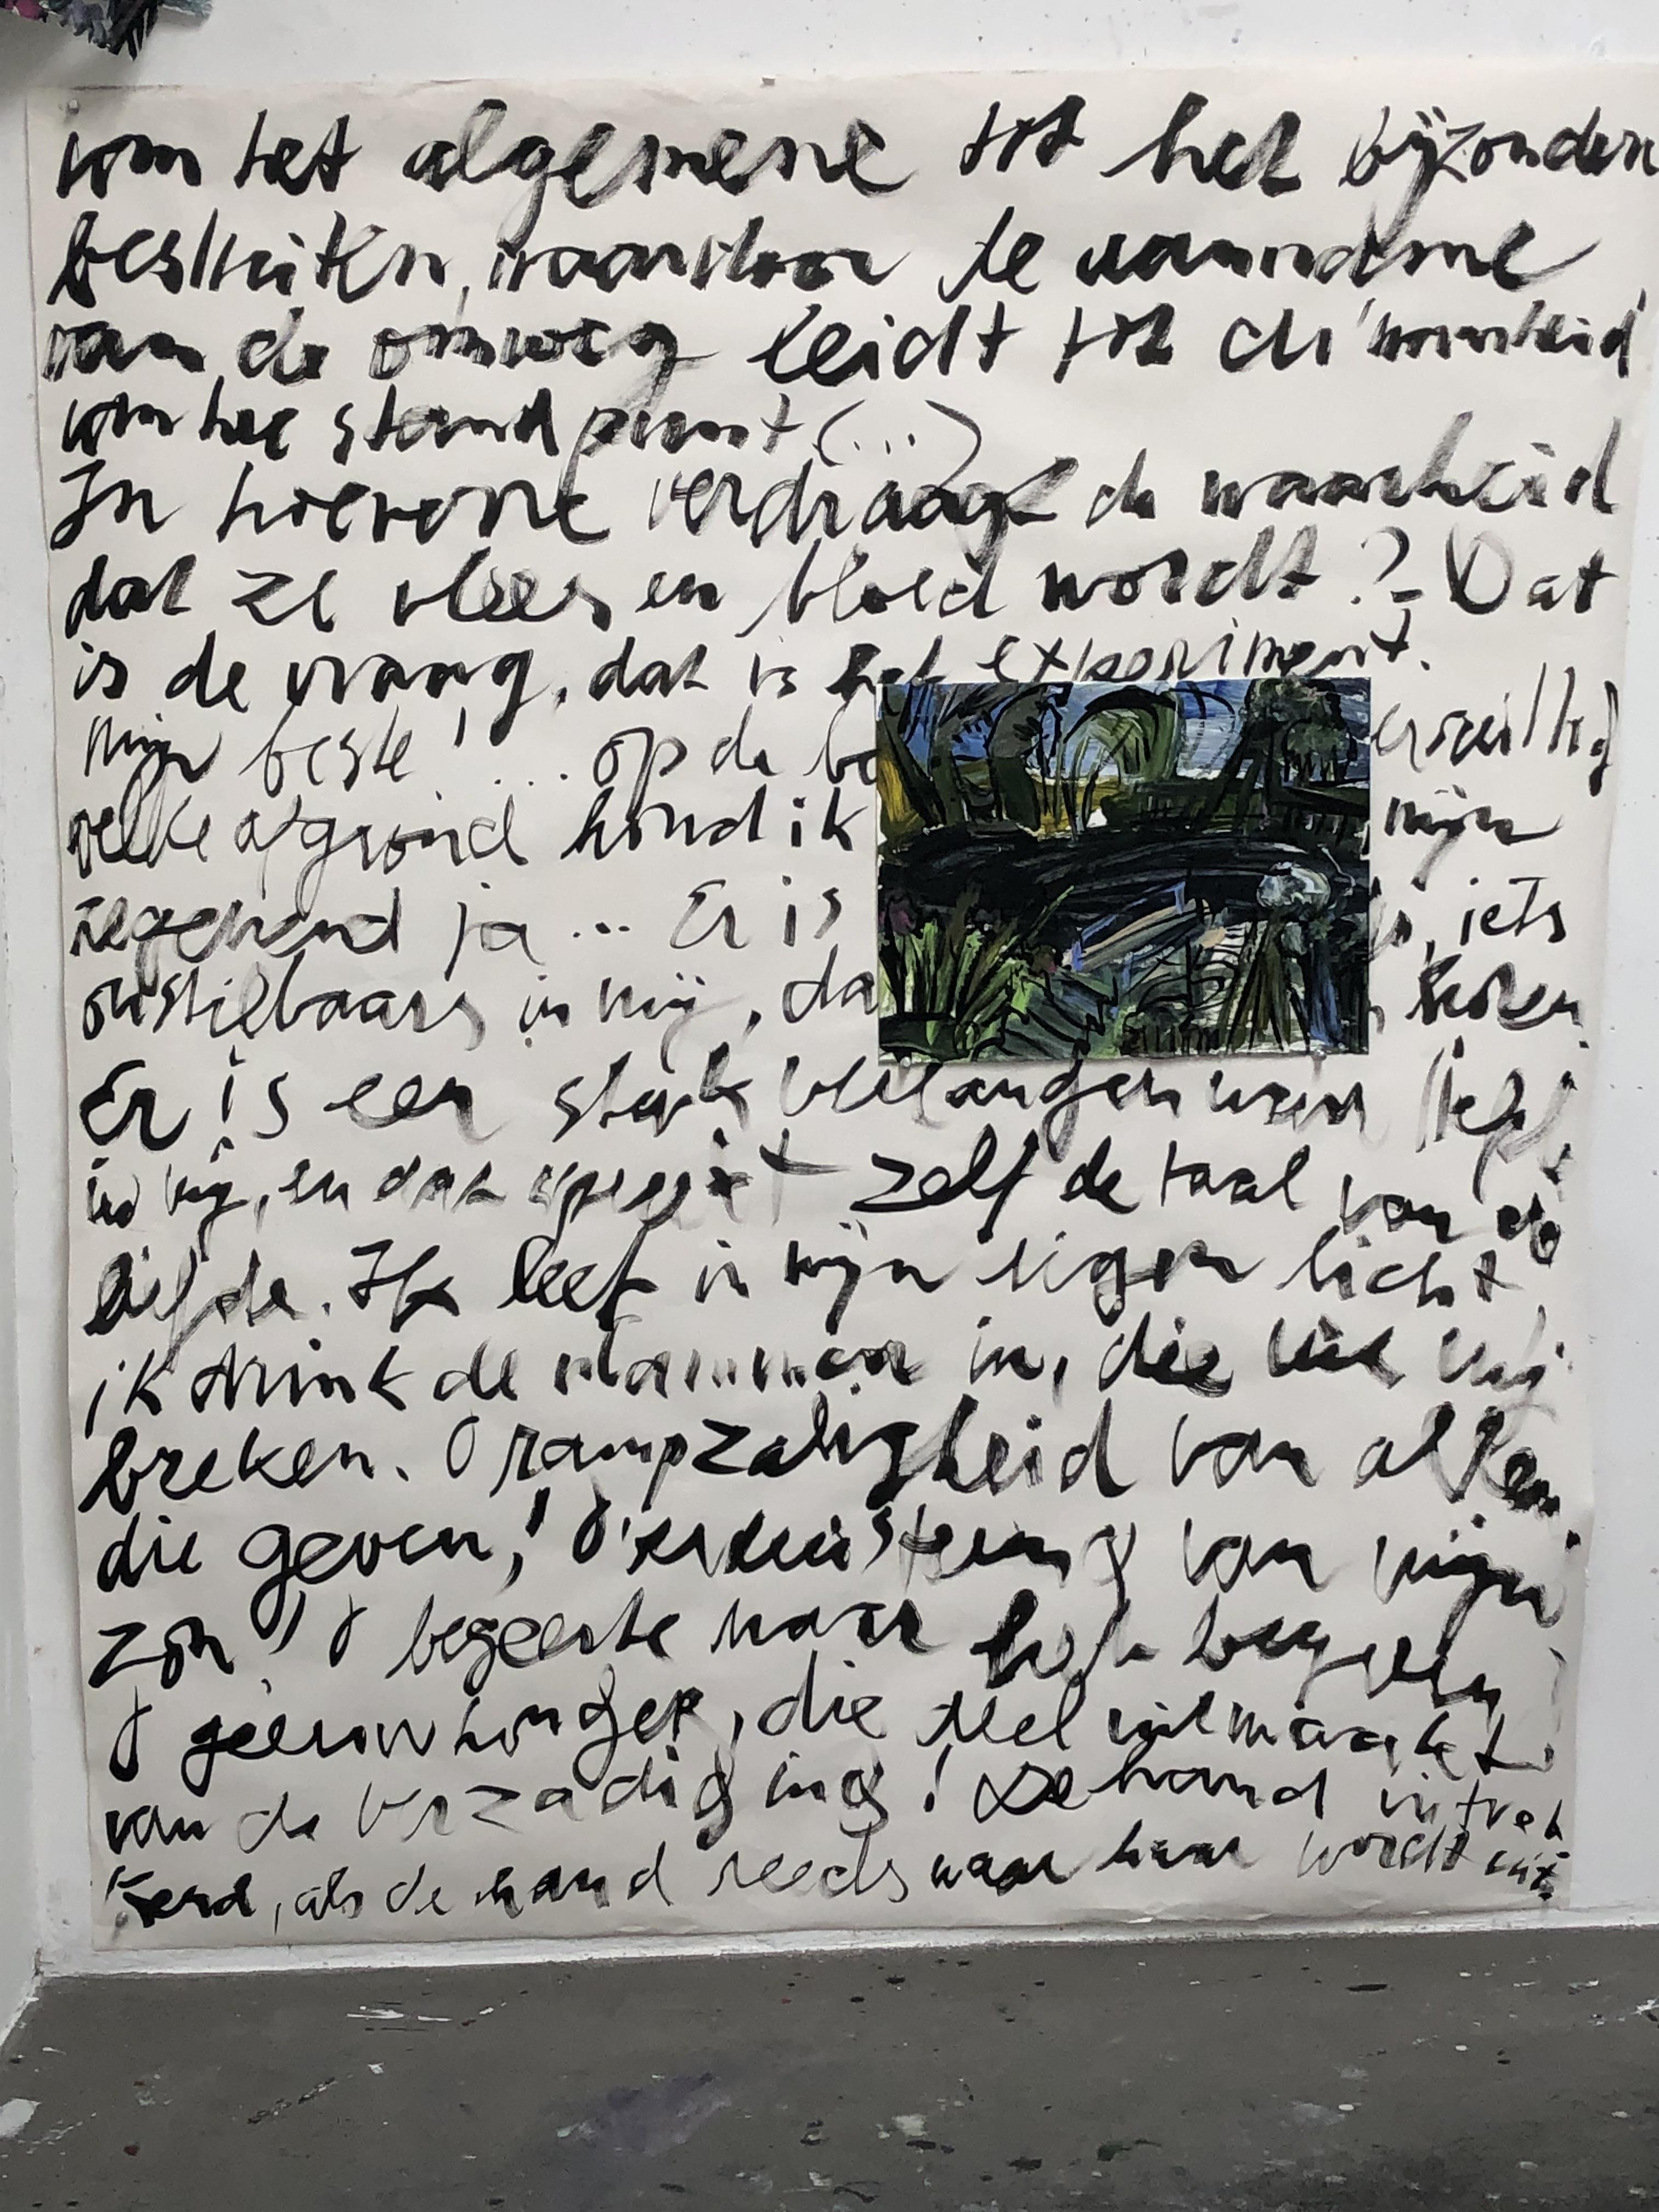 van het algemene tot het bijzondere
besluiten, waardoor de
van de omweg leidt tot de waarheid
van het standpunt (...)
In hoeverre verdraagt de waarheid
dat ze vlees en bloed wordt? - Dat
is de vraag, dat is het experiment.
mijn beste! ... op de
welke afgrond houd ik mijn
zegenend ja ... Er is iets
onstilbaars in mij, da
Er is een sterk verlangen naar liefde
in mij, en dat spreekt zelf de taal van de
liefde. Ik leef in mijn eigen licht
ik drink de vlammen in, die uit mij
breken. O rampzaligheid van allen
die geven! O verduistering van mijn
zon! O begeerte naar het begeren
O geeuwhonger, die deel uitmaakt
van de verzadiging! De hand
als de hand reeds naar haar wordt uit